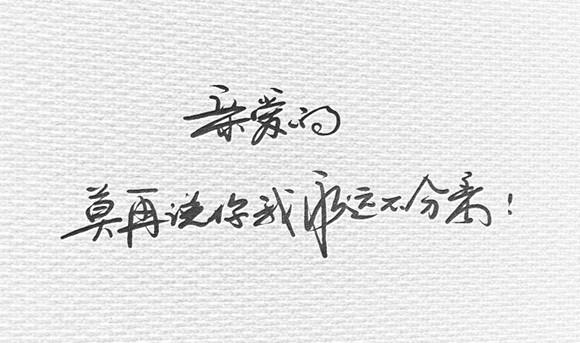 亲爱的
莫再说你我永远不分离！